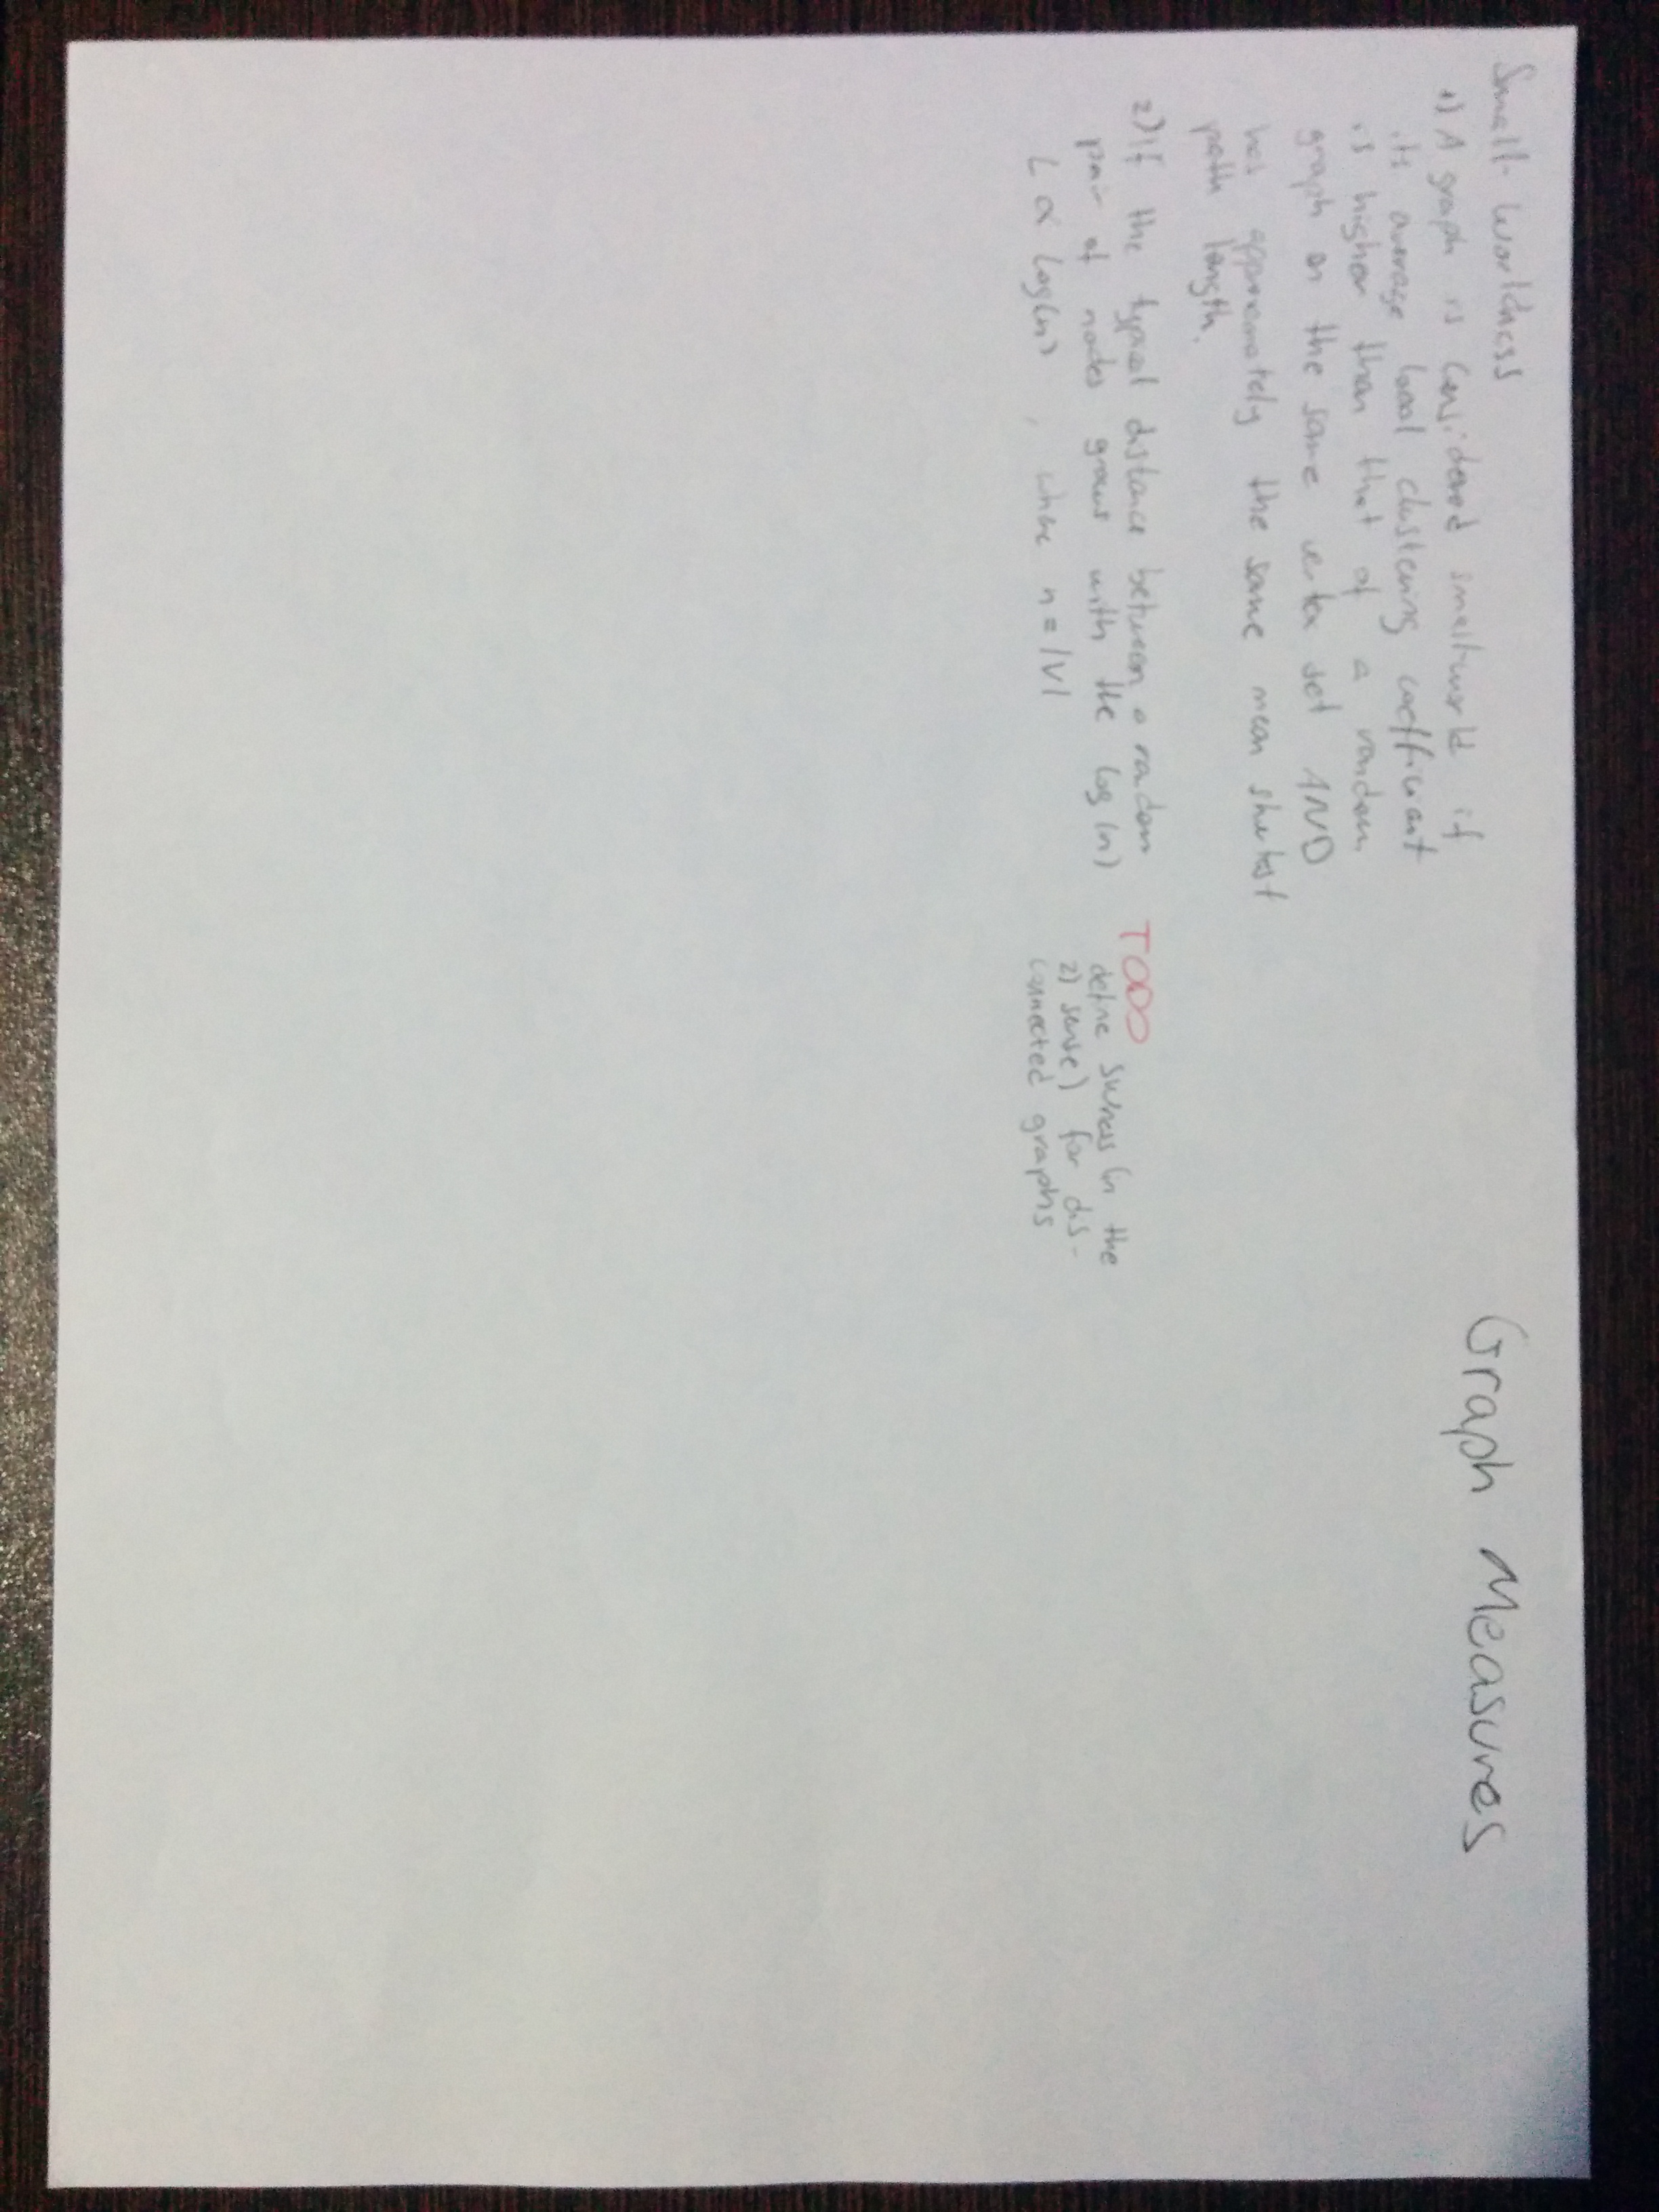 Graph Measures
Small-Worldness
1) A graph is considered smallworld if
its average local clustering coefficient
is higher than that of a random
graph on the same vertex set AND
has approximately the same mean shortest
path length.
2) If the typical distance between a random
pair of nodes grows with the log(n)
L ∝ log(n) , where n = |V|
TODO
define swness (in the
2) sense) for dis-
connected graphs